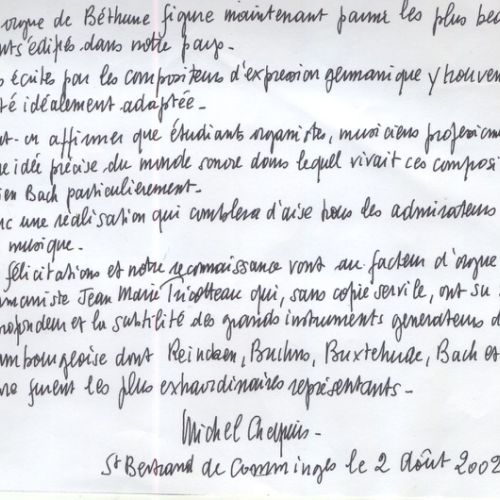 orgue de Béthune figure maintenant parmi les plus bea
nts édifiés dans notre pays.
s écrites par les compositeurs d'expression germanique y trouven
té idéalement adaptée.
t-on affirmer que étudiants organistes, musiciens professionn
ne idée précise du monde sonore dans lequel vivait ces composi
ien Bach particulièrement.
nc une réalisation qui comblera d'aise tous les admirateurs
musique.
félicitations et notre reconnaissance vont au facteur d'orgue
rmoniste Jean Marie Tricotteau qui, sans copie servile, ont su
rofondeur et la subtilité des grands instruments generateurs d
ambourgeoise dont Reincken, Bruhns, Buxtehude, Bach et
furent les plus extraordinaires représentants.
Michel Chapuis.
St Bertrand de Comminges le 2 Août 2002